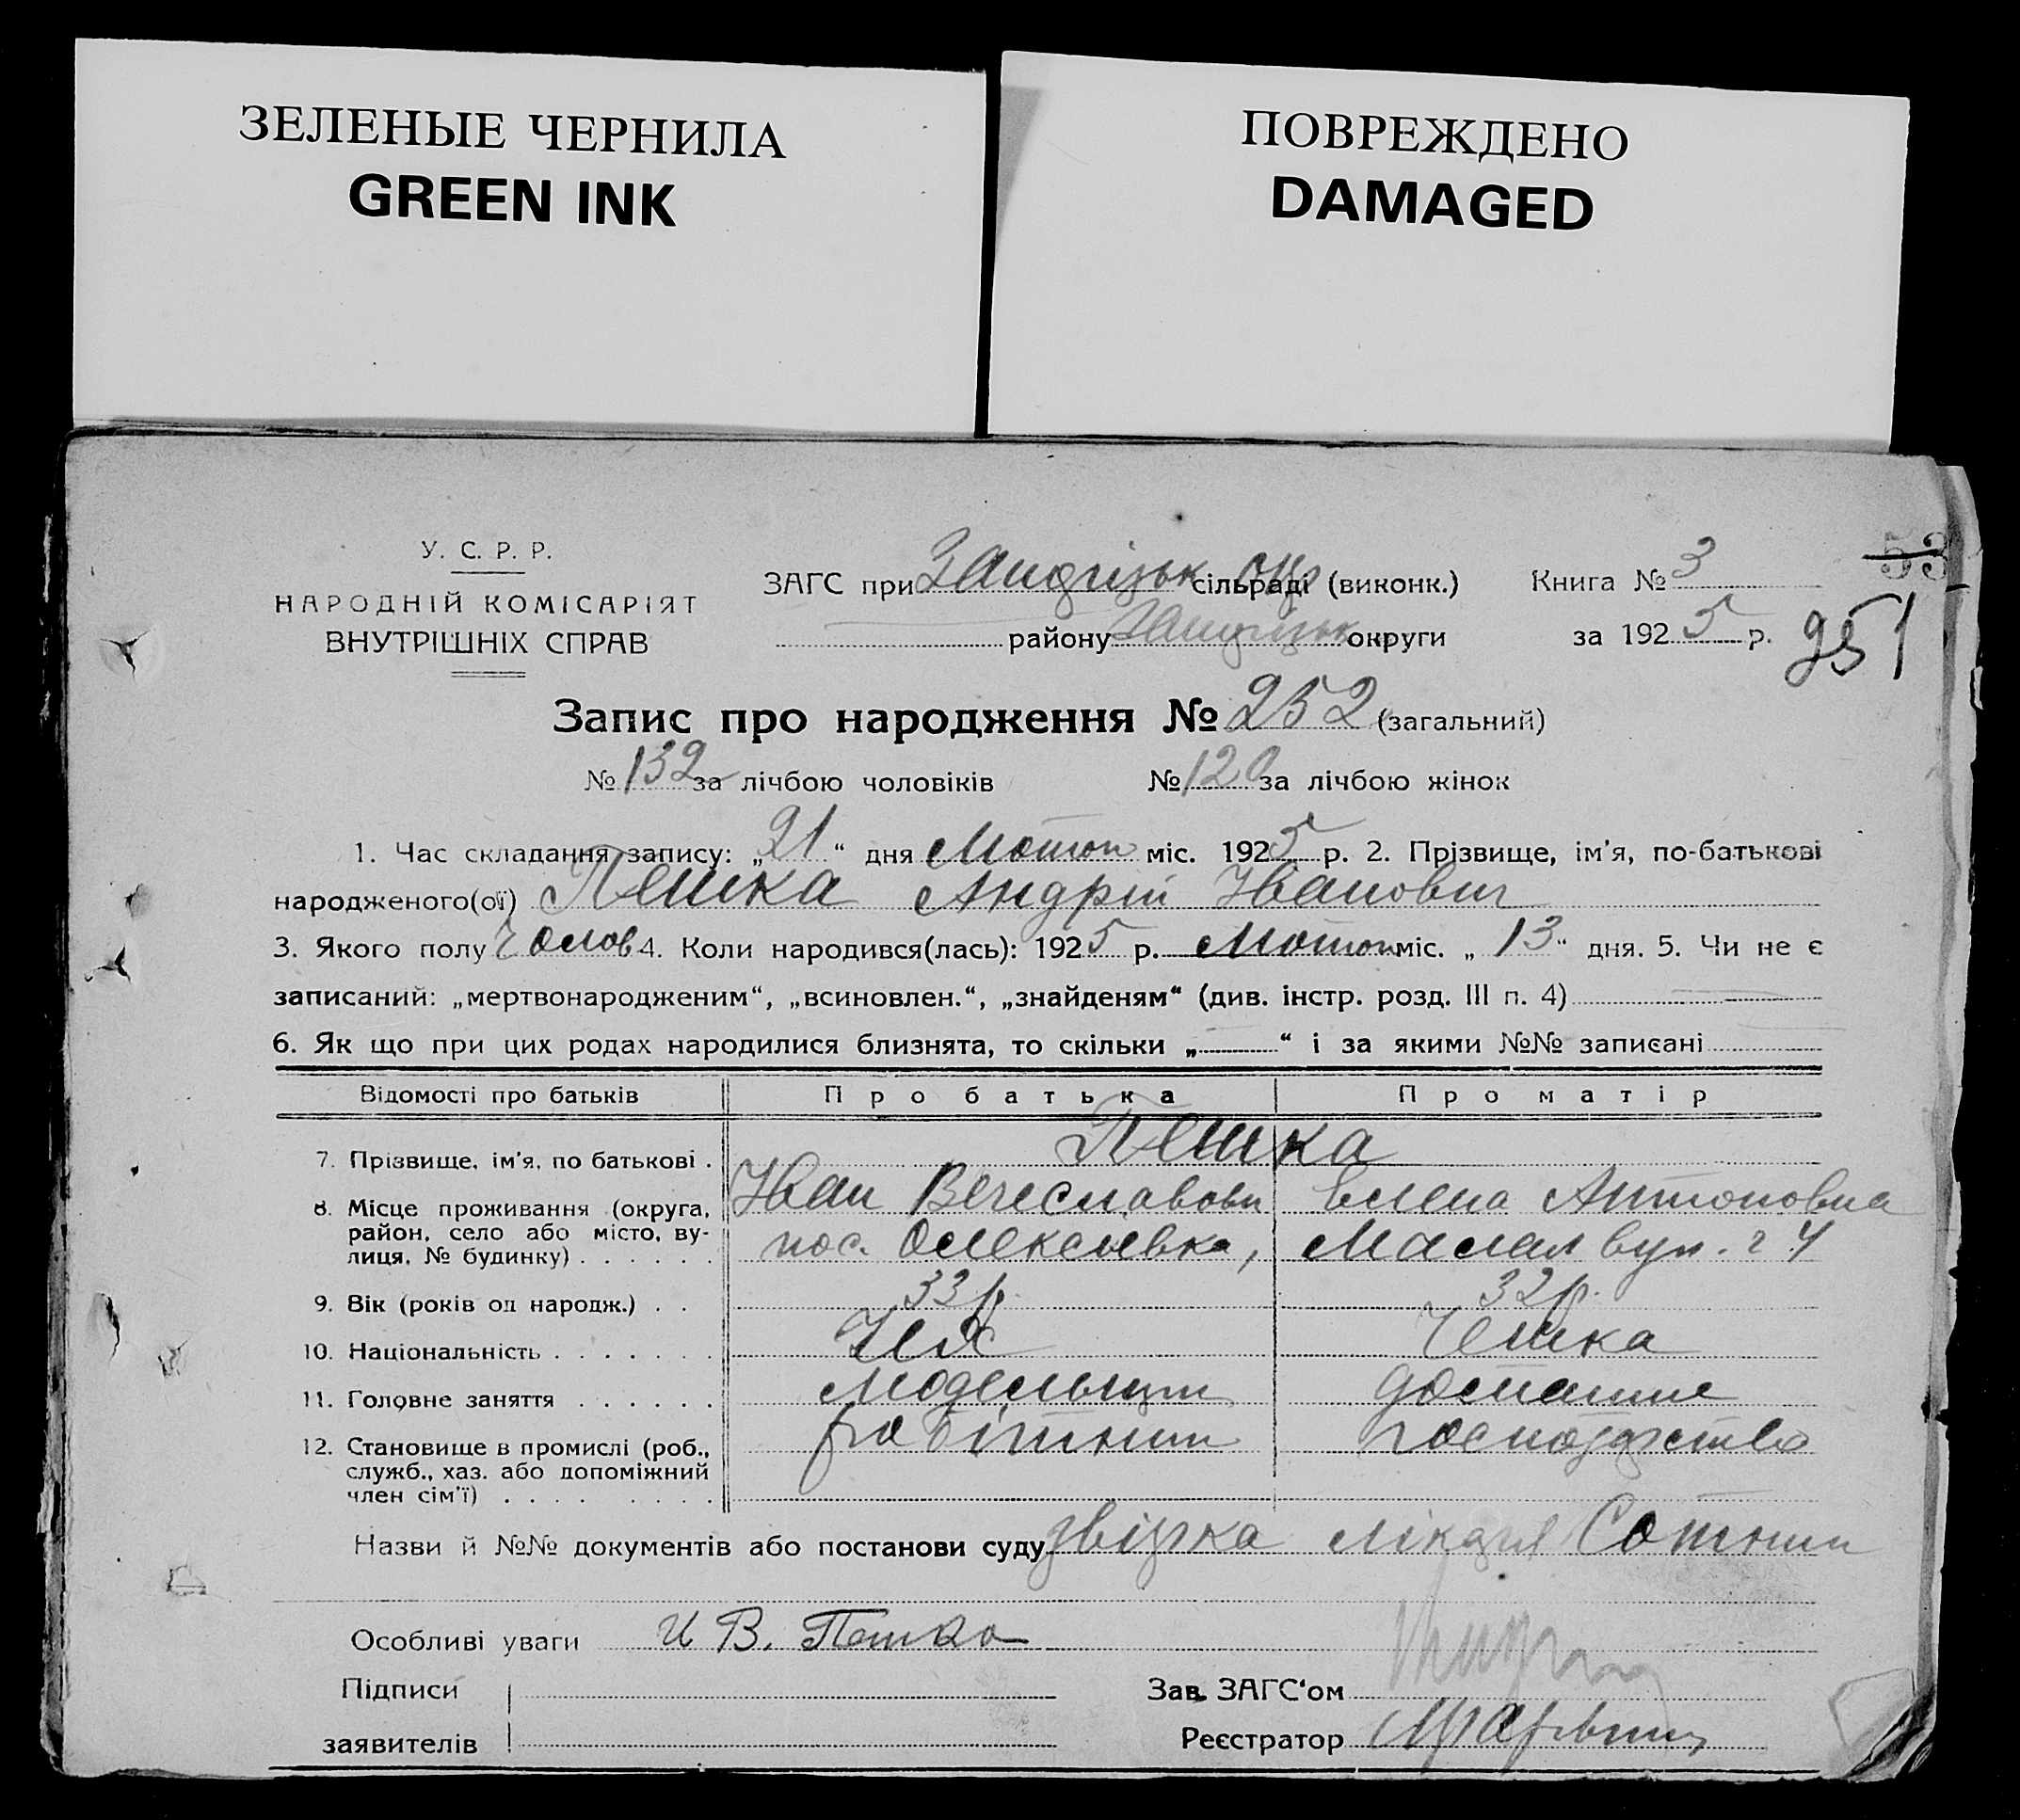 ЗЕЛЕНЫЕ ЧЕРНИЛА
GREEN INK
ПОВРЕЖДЕНО
DAMAGED
53
У. С. Р. Р.
НАРОДНІЙ КОМІСАРІЯТ
ВНУТРІШНІХ СПРАВ
ЗАГС при сільраді (виконк.) Книга № 3
району округи за 1925 р.
951
Запис про народження № 252 (загальний)
№ 132 за лічбою чоловіків № 120 за лічбою жінок
1. Час складання запису: „21“ дня Мотого міс. 1925 р. 2. Прізвище, ім'я, по-батькові
народженого(ої) Пешка Андрій Іванович
3. Якого полу Чолов 4. Коли народився(лась): 1925 р. Мотого міс. „13“ дня. 5. Чи не є
записаний: „мертвонародженим“, „всиновлен.“, „знайденям“ (див. інстр. розд. III п. 4)
6. Як що при цих родах народилися близнята, то скільки „ “ і за якими №№ записані
Відомості про батьків Про батька Про матір
7. Прізвище, ім'я, по батькові . Пешка
Іван Вечеславович Елена Антоновна
8. Місце проживання (округа,
район, село або місто, ву-
лиця, № будинку) . . . . . . пос. Олексіевка, Малая вул. ч 4
9. Вік (років од народж.) . . 33 р. 32 р.
10. Національність . . . . . . . Чех Чешка
11. Головне заняття . . . . . . Модельщик домашне
12. Становище в промислі (роб., робітник господарство
служб., хаз. або допоміжний
член сім'ї) . . . . . . . .
Назви й №№ документів або постанови суду звідка лікаря Сотник
Особливі уваги И В. Пешка
Підписи
заявителів
Зав. ЗАГС'ом
Реєстратор